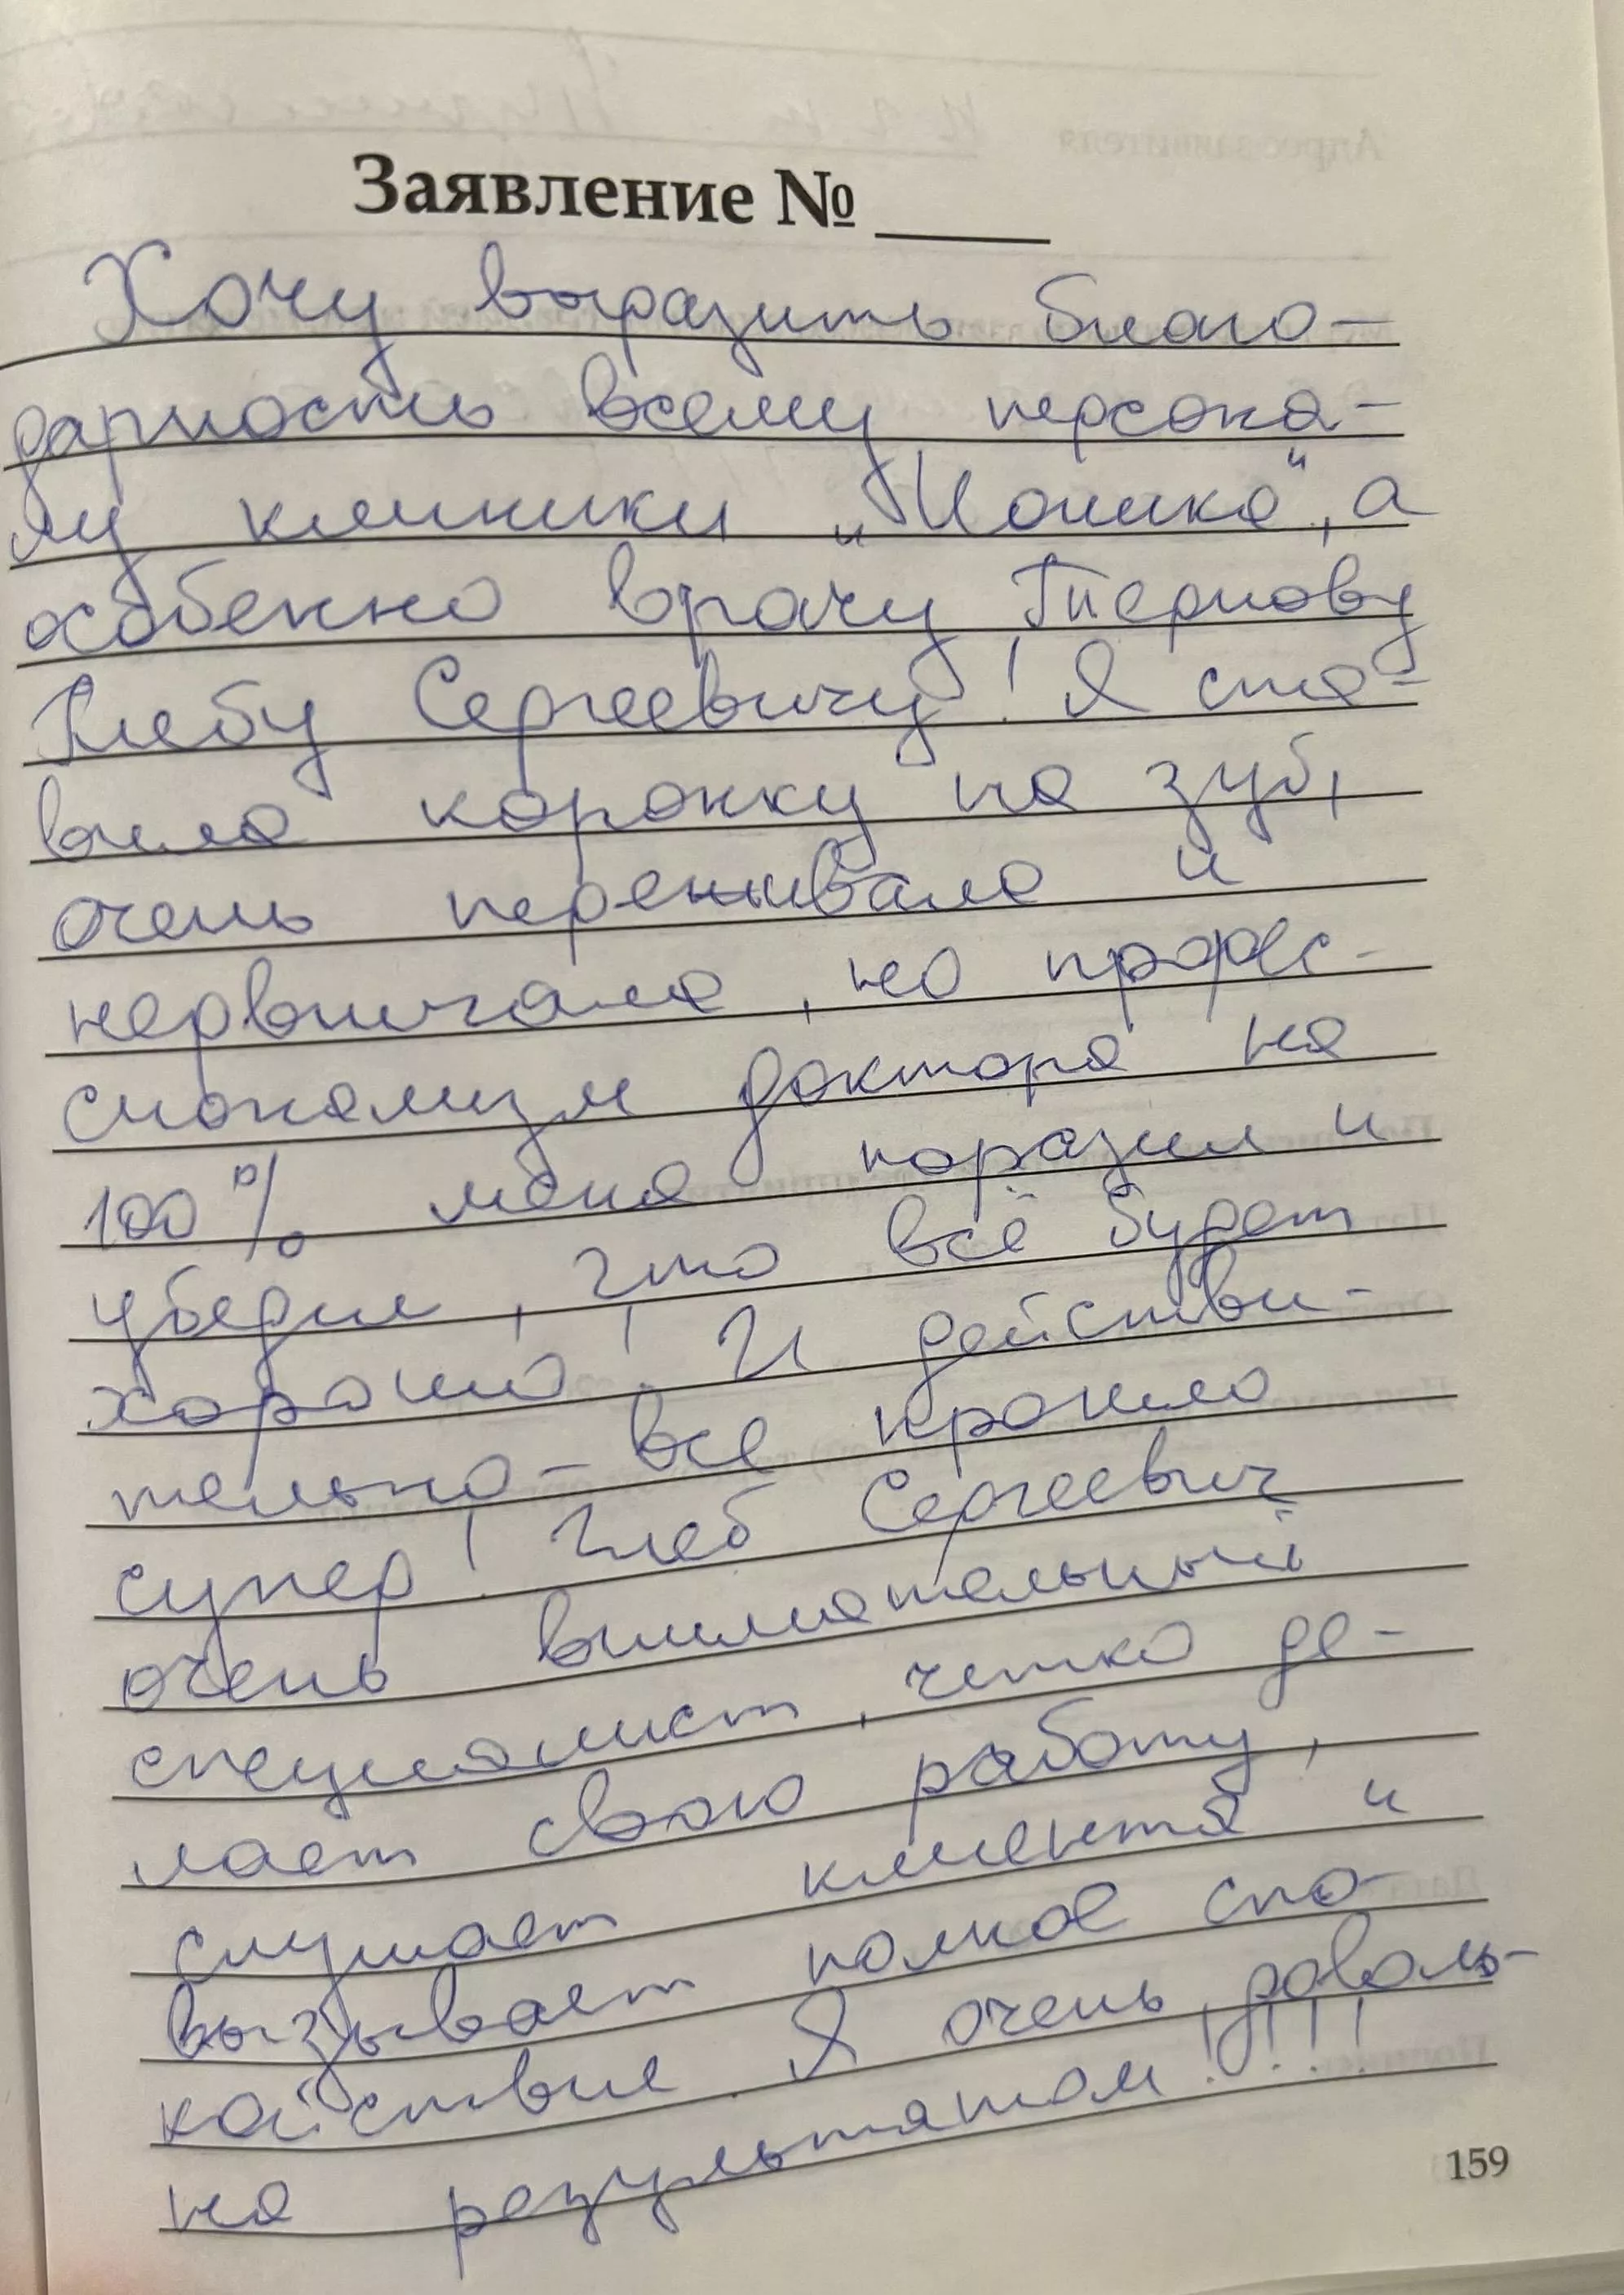 Заявление № ____
Хочу выразить благо-
дарность всему персона-
лу клиники „Ионика“, а
особенно врачу Тернову
Глебу Сергеевичу! Я ста-
вила коронку на зуб,
очень переживала и
нервничала, но профес-
сионализм доктора на
100% меня поразил и
убедил, что всё будет
хорошо! И действи-
тельно – все прошло
супер! Глеб Сергеевич
очень внимательный
специалист, четко де-
лает свою работу,
слушает клиента и
вызывает полное спо-
койствие. Я очень доволь-
на результатом!!!!
159